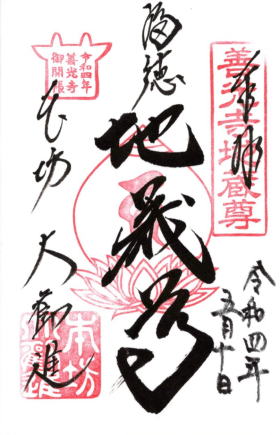 奉拝
善光寺地蔵尊
福徳
地蔵尊
令和四年
五月十日
令和四年
善光寺
御開帳
本坊 大勧進
本坊